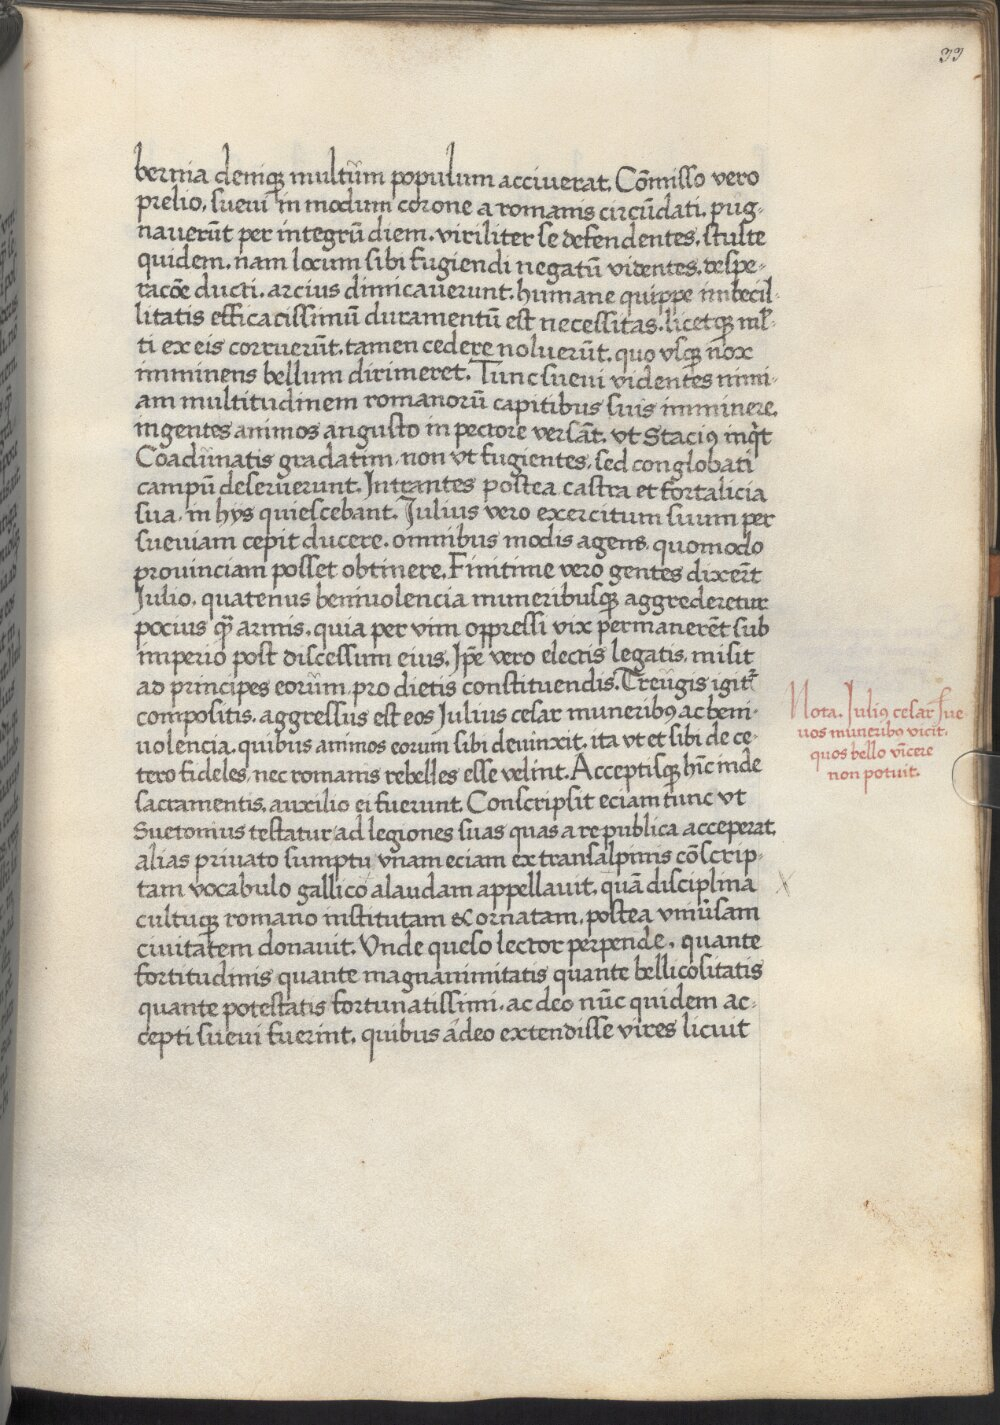 33
bernia deniqꝫ multũm populum acciuerat. Cõmisso vero
prelio, sueui in modum corone a romanis circũdati, pug-
nauerũt per integrũ diem, viriliter se defendentes, stulte
quidem, nam locum sibi fugiendi negatũ videntes, despe-
racõe ducti, arcius dimicauerunt, humane quippe imbecil-
litatis efficacissimũ duramentũ est necessitas, licetqꝫ ml̃-
ti ex eis corruerũt, tamen cedere noluerũt, quo vsqꝫ nox
imminens bellum dirimeret. Tunc sueui videntes nimi-
am multitudinem romanorũ capitibus suis imminere,
ingentes animos angusto in pectore versãt, vt Staciꝰ inq̇t
Coadunatis gradatim, non vt fugientes, sed conglobati
campũ deseruerunt. Intrantes postea castra et fortalicia
sua, in hys quiescebant. Julius vero excercitum suum per
sueuiam cepit ducere, omnibus modis agens, quomodo
prouinciam posset obtinere. Finitime vero gentes dixer̃t
Julio, quatenus beniuolencia muneribusqꝫ aggrederetur
pocius q̃ȝ armis, quia per vim oppressi vix permanerẽt sub
imperio post discessum eius. Ip̃e vero electis legatis, misit
ad principes eorũm, pro dietis constituendis. Treugis igitᷣ
compositis, aggressus est eos Julius cesar muneribꝰ ac beni-
uolencia, quibus animos eorum sibi deuinxit, ita vt et sibi de ce-
tero fideles, nec romanis rebelles esse velint. Acceptisqꝫ hĩc inde
sacramentis, auxilio ei fuerunt. Conscripsit eciam tunc vt
Suetonius testatur ad legiones suas quas a re publica acceperat,
alias priuato sumptu vnam eciam ex transalpinis cõscrip-
tam vocabulo gallico alaudam appellauit, quã disciplina
cultuqꝫ romano institutam & ornatam, postea vniũsam
ciuitatem donauit. Vnde queso lector perpende, quante
fortitudinis quante magnanimitatis quante bellicositatis
quante potestatis fortunatissimi, ac deo nũc quidem ac-
cepti sueui fuerint, quibus adeo extendisse vires licuit
Nota. Juliꝰ cesar sue
uos muneribꝰ vicit,
quos bello vĩcere
non potuit.